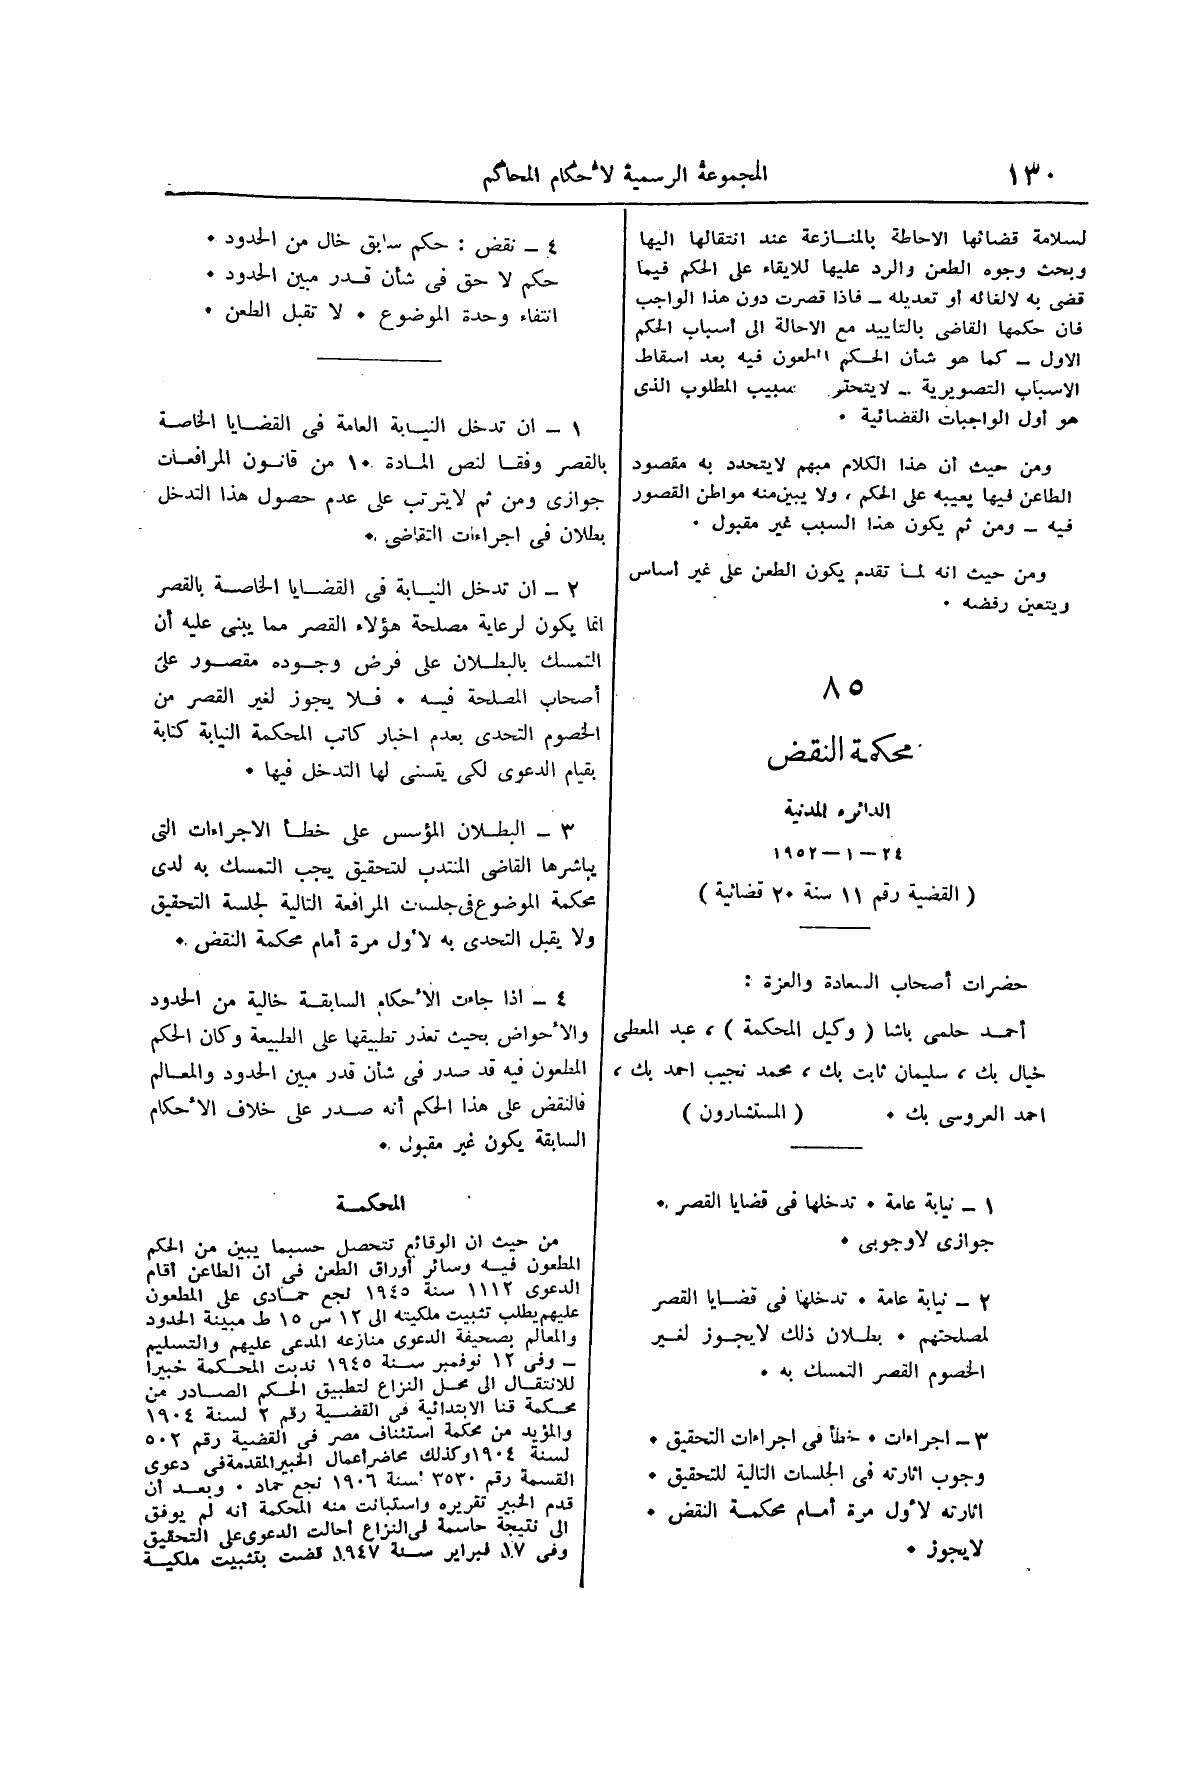 ١٣٠
المجموعة الرسمية لأحكام المحاكم
لسلامة قضائها الاحاطة بالمنازعة عند انتقالها اليها
وبحث وجوه الطعن والرد عليها للابقاء على الحكم فيما
قضى به لالغائه أو تعديله ــ فاذا قصرت دون هذا الواجب
فان حكمها القاضى بالتأييد مع الاحالة الى أسباب الحكم
الاول ــ كما هو شأن الحكم المطعون فيه بعد اسقاط
الاسباب التصويرية ــ لايتحقق سبيب المطلوب الذى
هو أول الواجبات القضائية ٠
ومن حيث أن هذا الكلام مبهم لايتحدد به مقصود
الطاعن فيها يعيبه على الحكم ، ولا يبين منه مواطن القصور
فيه ــ ومن ثم يكون هذا السبب غير مقبول ٠
ومن حيث انه لما تقدم يكون الطعن على غير أساس
ويتعين رفضه ٠
٨٥
محكمة النقض
الدائره المدنية
٢٤ــ١ــ١٩٥٢
( القضية رقم ١١ سنة ٢٠ قضائية )
حضرات أصحاب السعادة والعزة :
أحمد حلمى باشا ( وكيل المحكمة ) ، عبد المعطى
خيال بك ، سليمان ثابت بك ، محمد نجيب احمد بك ،
احمد العروسى بك ٠ ( المستشارون )
١ ــ نيابة عامة ٠ تدخلها فى قضايا القصر ٠
جوازى لاوجوبى ٠
٢ ــ نيابة عامة ٠ تدخلها فى قضايا القصر
لمصلحتهم ٠ بطلان ذلك لايجوز لغير
الخصوم القصر التمسك به ٠
٣ ــ اجراءات ٠ خطأ فى اجراءات التحقيق ٠
وجوب اثارته فى الجلسات التالية للتحقيق ٠
اثارته لأول مرة أمام محكمة النقض ٠
لايجوز ٠
٤ ــ نقض : حكم سابق خال من الحدود ٠
حكم لا حق فى شأن قدر مبين الحدود ٠
انتفاء وحدة الموضوع ٠ لا تقبل الطعن ٠
١ ــ ان تدخل النيابة العامة فى القضايا الخاصة
بالقصر وفقا لنص المادة ١٠٠ من قانون المرافعات
جوازى ومن ثم لايترتب على عدم حصول هذا التدخل
بطلان فى اجراءات التقاضى ٠
٢ ــ ان تدخل النيابة فى القضايا الخاصة بالقصر
انما يكون لرعاية مصلحة هؤلاء القصر مما يبنى عليه أن
التمسك بالبطلان على فرض وجوده مقصور على
أصحاب المصلحة فيه ٠ فلا يجوز لغير القصر من
الخصوم التحدى بعدم اخبار كاتب المحكمة النيابة كتابة
بقيام الدعوى لكى يتسنى لها التدخل فيها ٠
٣ ــ البطلان المؤسس على خطأ الاجراءات التى
يباشرها القاضى المنتدب للتحقيق يجب التمسك به لدى
محكمة الموضوع فى جلسات المرافعة التالية لجلسة التحقيق
ولا يقبل التحدى به لأول مرة أمام محكمة النقض ٠
٤ ــ اذا جاءت الأحكام السابقة خالية من الحدود
والأحواض بحيث تعذر تطبيقها على الطبيعة وكان الحكم
المطعون فيه قد صدر فى شأن قدر مبين الحدود والمعالم
فالنقض على هذا الحكم أنه صدر على خلاف الأحكام
السابقة يكون غير مقبول ٠
المحكمة
من حيث ان الوقائع تتحصل حسبما يبين من الحكم
المطعون فيه وسائر أوراق الطعن فى أن الطاعن أقام
الدعوى ١١١٢ سنة ١٩٤٥ نجع حمادى على المطعون
عليهم يطلب تثبيت ملكيته الى ١٢ س ١٥ ط مبينة الحدود
والمعالم بصحيفة الدعوى منازعه المدعى عليهم والتسليم
ــ وفى ١٢ نوفمبر سنة ١٩٤٥ ندبت المحكمة خبيرا
للانتقال الى محل النزاع لتطبيق الحكم الصادر من
محكمة قنا الابتدائية فى القضية رقم ٢ لسنة ١٩٠٤
والمؤيد من محكمة استئناف مصر فى القضية رقم ٥٠٢
لسنة ١٩٠٤ وكذلك محاضر أعمال الخبير المقدمة فى دعوى
القسمة رقم ٣٥٣٠ لسنة ١٩٠٦ نجع حماد ٠ وبعد أن
قدم الخبير تقريره واستبانت منه المحكمة أنه لم يوفق
الى نتيجة حاسمة فى النزاع أحالت الدعوى على التحقيق
وفى ١٧ فبراير سنة ١٩٤٧ قضت بتثبيت ملكية